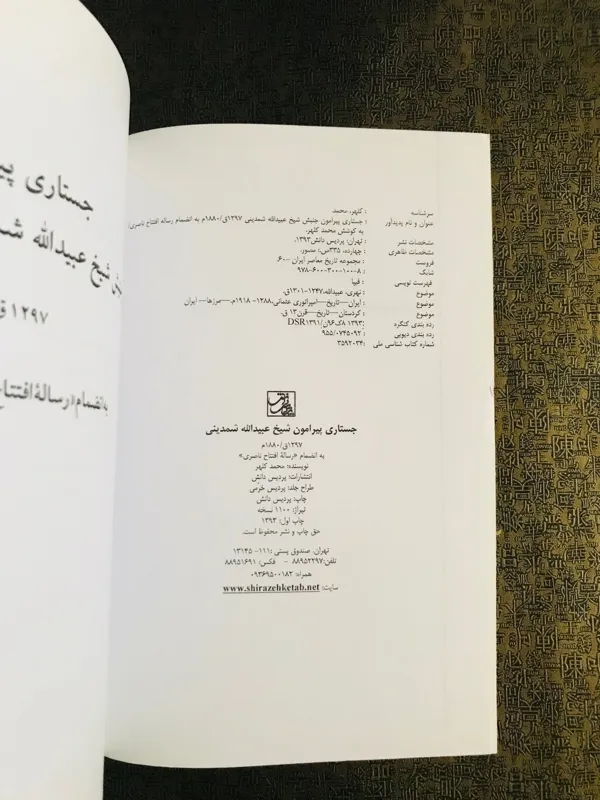 جستاری
شیخ عبیدالله
۱۲۹۷ق
به انضمام «رسالهٔ افتتاح
سرشناسه : کلهر، محمد
عنوان و نام پدیدآور : جستاری پیرامون جنبش شیخ عبیدالله شمدینی ۱۲۹۷ق/۱۸۸۰م به انضمام رساله افتتاح ناصری/
به کوشش محمد کلهر.
مشخصات نشر : تهران: پردیس دانش،۱۳۹۳.
مشخصات ظاهری : چهارده، ۳۳۵ص: مصور.
فروست : مجموعه تاریخ معاصر ایران -۶۰.
شابک : ۹۷۸-۶۰۰-۳۰۰-۱۰۰-۸
فهرست نویسی : فیپا
موضوع : نهری، عبیدالله،۱۲۴۷-۱۳۰۱ق.
موضوع : ایران—تاریخ—امپراتوری عثمانی،۱۲۸۸- ۱۹۱۸م.—مرزها— ایران
موضوع : کردستان—تاریخ—قرن۱۳ ق.
رده بندی کنگره : ۱۳۹۳ ۸ک۹۶ن/DSR۱۳۹۱
رده بندی دیویی : ۹۵۵/۰۷۴۵۰۹۲
شماره کتاب شناسی ملی : ۳۵۹۲۰۳۴
جستاری پیرامون شیخ عبیدالله شمدینی
۱۲۹۷ق/۱۸۸۰م
به انضمام «رسالهٔ افتتاح ناصری»
نویسنده: محمد کلهر
انتشارات: پردیس دانش
طراح جلد: پردیس خرمی
چاپ: پردیس دانش
تیراژ: ۱۱۰۰ نسخه
چاپ اول: ۱۳۹۳
حق چاپ و نشر محفوظ است.
تهران، صندوق پستی :۱۱۱- ۱۳۱۴۵
تلفن:۸۸۹۵۲۲۹۷ - فکس: ۸۸۹۵۱۶۹۱
همراه: ۰۹۳۶۹۵۰۰۱۸۲
سایت: www.shirazehketab.net